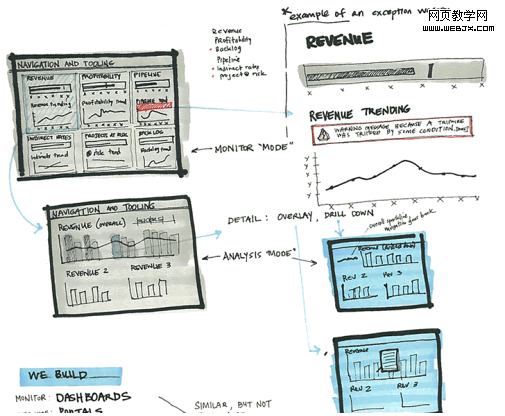 * example of an exception w
网页教学网
www.webjx.com
Revenue
Profitability
Backlog
Pipeline
Indirect rates
* project @ risk
REVENUE
NAVIGATION AND TOOLING
REVENUE
PROFITABILITY
PIPELINE
Revenue trending
Profitability trend
Pipeline
x x x x x x x x
REVENUE TRENDING
WARNING MESSAGE BECAUSE A TRIPWIRE
WAS TRIPPED BY SOME CONDITION.
INDIRECT RATES
PROJECTS AT RISK
BACKLOG
@ risk trend
Backlog trend
MONITOR "MODE"
Y
Y
Y
Y
x x x x x x x x
NAVIGATION AND TOOLING
REVENUE (OVERALL)
REVENUE 2
REVENUE 3
DETAIL: OVERLAY, DRILL DOWN
ANALYSIS "MODE"
REV 2
REV 3
REVENUE
REV 2
REV 3
WE BUILD
MONITOR: DASHBOARDS
PORTALS
SIMILAR, BUT NOT